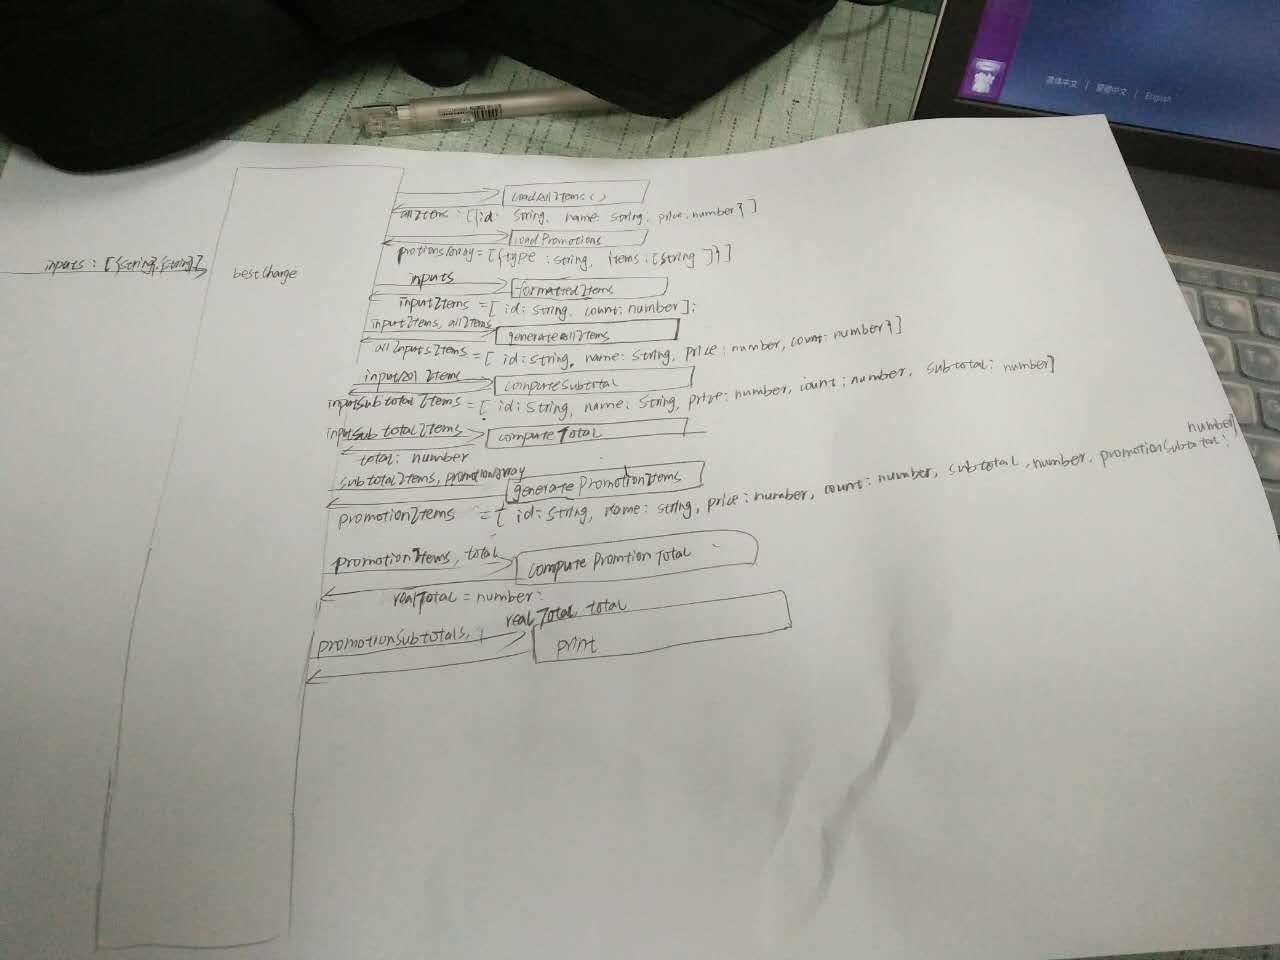 简体中文 | 繁體中文 | English
loadAllItems()
allItem : [{id: String, name: String, price: number}]
loadPromotions
protionsArray = [{type : string, items : [string]}]
inputs : [{string},{string}]
bestCharge
inputs
formattedItems
inputItems = [ id: String, count: number];
inputItems, allItems
generateallItems
allInputsItems = [ id: String, name: String, price : number, count: number}]
computeSubtotal
inputSubtotalItems = [ id: String, name: String, price: number, count : number, subtotal: number]
inputSubtotalItems
computeTotal
total: number
subtotalItems, promotionArray
generatePromotionItems
promotionItems = [ id: String, name: string, price : number, count : number, subtotal, number, promotionSubtotal: number}
promotionItems, total
compute Promtion Total
realTotal = number;
promotionSubtotals, realTotal, total
print